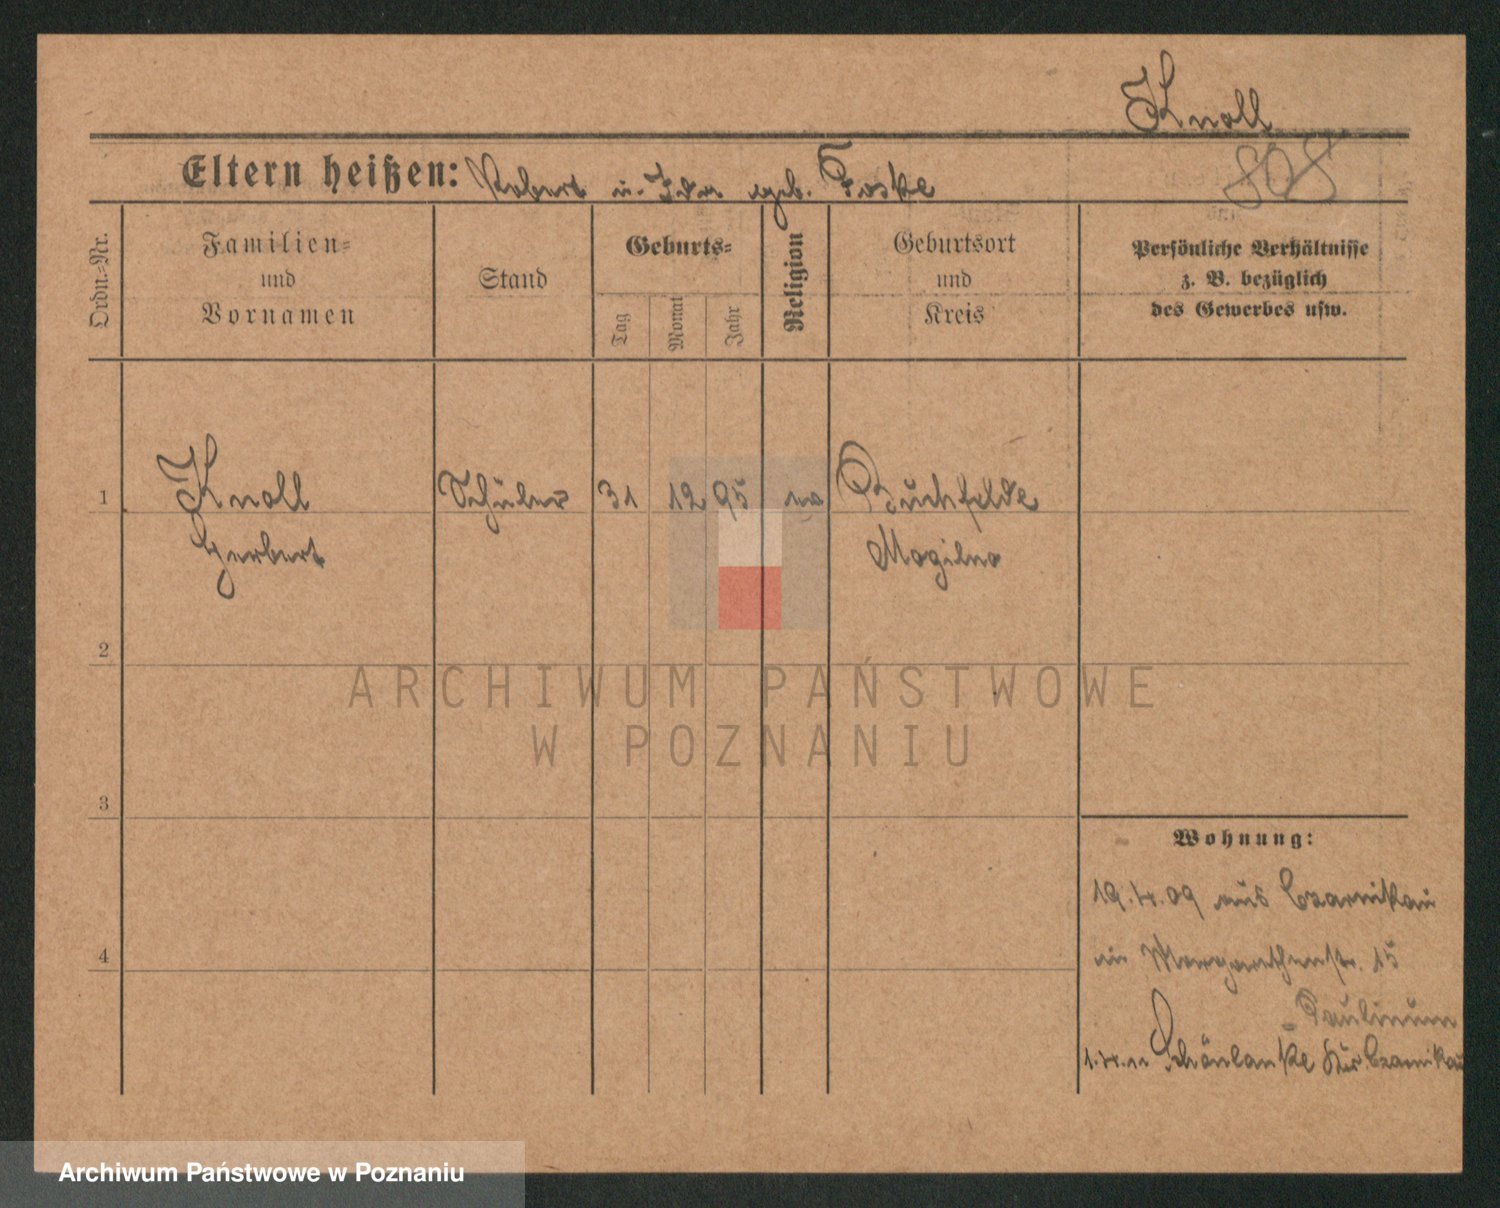 Knoll
Eltern heißen: Robert u. Ida geb. Foske
808
Ordn.-Nr.
Familien-
und
Vornamen
Stand
Geburts-
Tag
Monat
Jahr
Religion
Geburtsort
und
Kreis
Persönliche Verhältnisse
z. B. bezüglich
des Gewerbes usw.
1 Knoll Schüler 31 12 95 ev Buchfelde
Herbert Mogilno
2
3
4
Wohnung:
19.4.09 aus Czarnikau
in Margarethenstr. 15
Paulinum
1.4.11 Schönlanke Kr. Czarnikau
ARCHIWUM PAŃSTWOWE
W POZNANIU
Archiwum Państwowe w Poznaniu